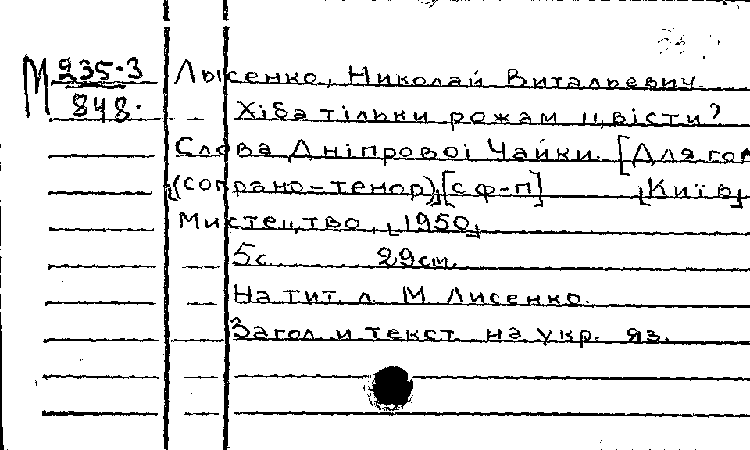 М 235-3
848.
Лысенко, Николай Витальевич.
Хіба тільки рожам цвісти?
Слова Дніпрової Чайки. [Для гол
(сопрано-тенор)] [с ф-п] [Київ]
Мистецтво, [1950]
5с. 29см.
На тит. л. М Лисенко.
Загол. и текст на укр. яз.